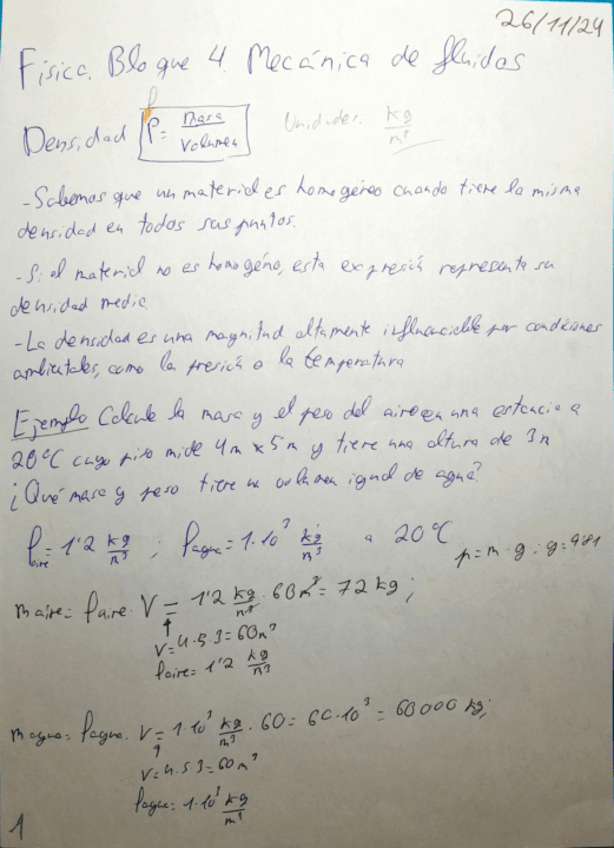 26/11/24
Física. Bloque 4. Mecánica de fluidos
Densidad ρ = masa / volumen Unidades: kg/m³
- Sabemos que un material es homogéneo cuando tiene la misma
densidad en todos sus puntos.
- Si el material no es homogéno, esta expresión representa su
densidad media
- La densidad es una magnitud altamente influenciable por condiciones
ambientales, como la presión o la temperatura
Ejemplo Calcule la masa y el peso del aire en una estancia a
20ºC cuyo piso mide 4m x 5m y tiene una altura de 3m
¿Qué masa y peso tiene un volumen igual de agua?
ρaire = 1'2 kg/m³ ; ρagua = 1·10³ kg/m³ a 20ºC
p = m·g ; g = 9'81
maire = ρaire · V = 1'2 kg/m³ · 60m³ = 72 kg;
V = 4·5·3 = 60m³
ρaire = 1'2 kg/m³
magua = ρagua · V = 1·10³ kg/m³ · 60 = 60·10³ = 60000 kg;
V = 4·5·3 = 60m³
ρagua = 1·10³ kg/m³
1